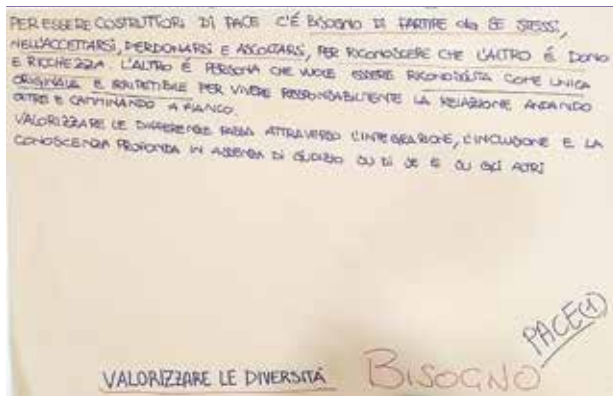 PER ESSERE COSTRUTTORI DI PACE C'É BISOGNO DI PARTIRE da SE STESSI,
NELL'ACCETTARSI, PERDONARSI E ASCOLTARSI, PER RICONOSCERE CHE L'ALTRO É DONO
E RICCHEZZA. L'ALTRO É PERSONA CHE VUOLE ESSERE RICONOSCIUTA COME UNICA
ORIGINALE E IRRIPETIBILE PER VIVERE RESPONSABILMENTE LA RELAZIONE ANDANDO
OLTRE E CAMMINANDO A FIANCO.
VALORIZZARE LE DIFFERENZE PASSA ATTRAVERSO L'INTEGRAZIONE, L'INCLUSIONE E LA
CONOSCENZA PROFONDA IN ASSENZA DI GIUDIZIO SU DI SE E SU GLI ALTRI
PACE (1)
VALORIZZARE LE DIVERSITÁ BISOGNO